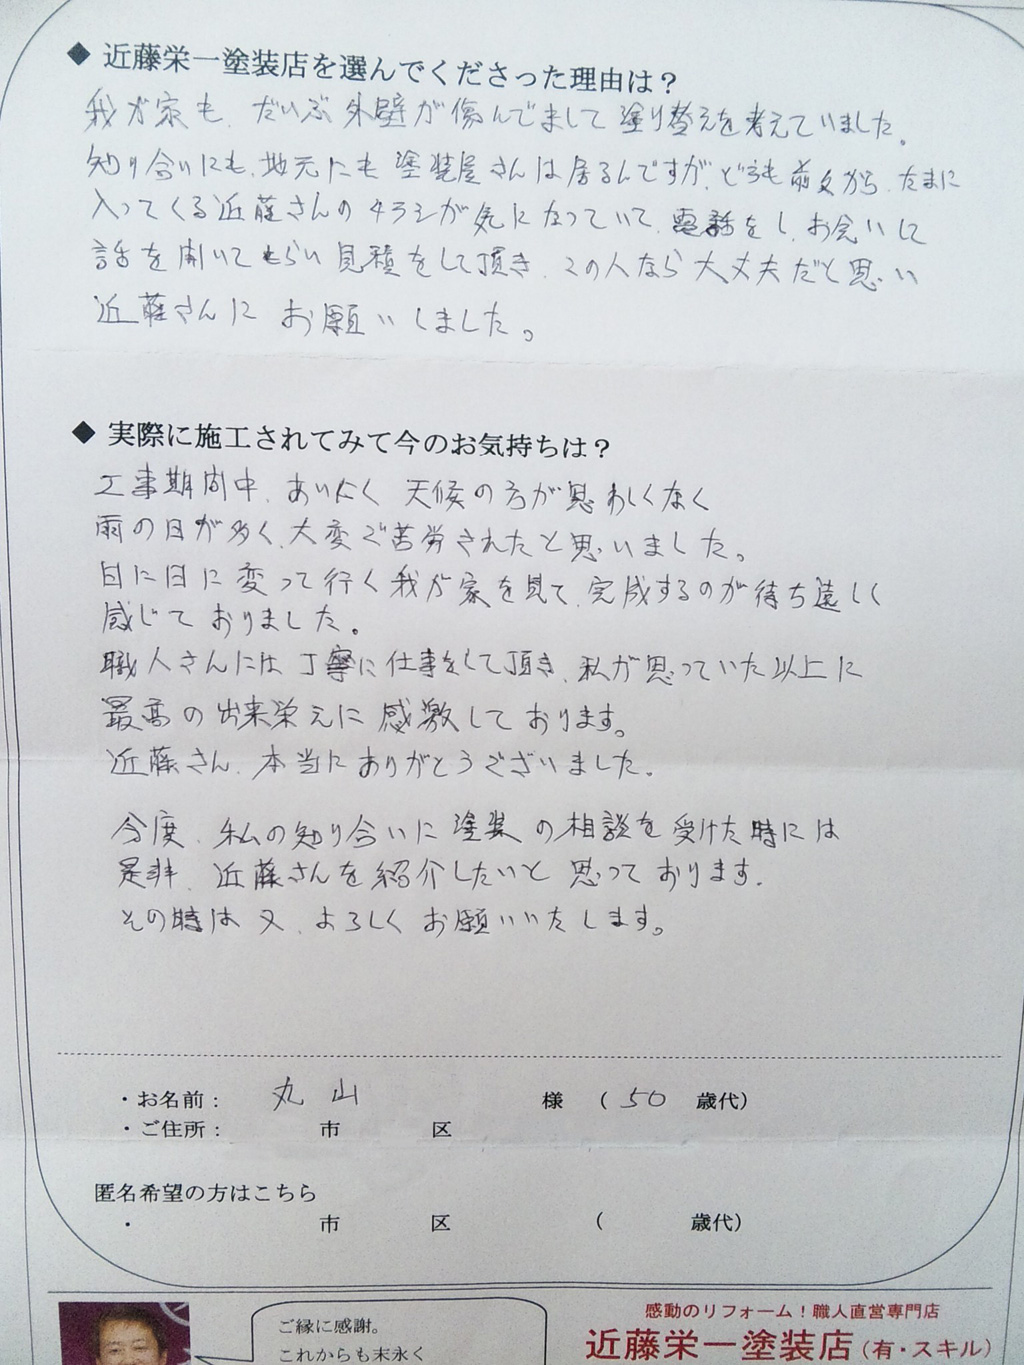 ◆ 近藤栄一塗装店を選んでくださった理由は？
我が家も、だいぶ外壁が傷んでまして塗り替えを考えていました。
知り合いにも、地元にも塗装屋さんは居るんですが、どうも前々から、たまに
入ってくる近藤さんのチラシが気になっていて、電話をし、お会いして
話を聞いてもらい見積をして頂き、この人なら大丈夫だと思い
近藤さんにお願いしました。
◆ 実際に施工されてみて今のお気持ちは？
工事期間中、あいにく天候の方が思わしくなく
雨の日が多く、大変ご苦労されたと思いました。
日に日に変って行く我が家を見て、完成するのが待ち遠しく
感じておりました。
職人さんには丁寧に仕事をして頂き、私が思っていた以上に
最高の出来栄えに感激しております。
近藤さん、本当にありがとうございました。
今度、私の知り合いに塗装の相談を受けた時には
是非、近藤さんを紹介したいと思っております。
その時は又、よろしくお願いいたします。
・お名前： 丸山 様 （ 50 歳代）
・ご住所： 市 区
匿名希望の方はこちら
・ 市 区 （ 歳代）
ご縁に感謝。
これからも末永く
感動のリフォーム！職人直営専門店
近藤栄一塗装店（有・スキル）